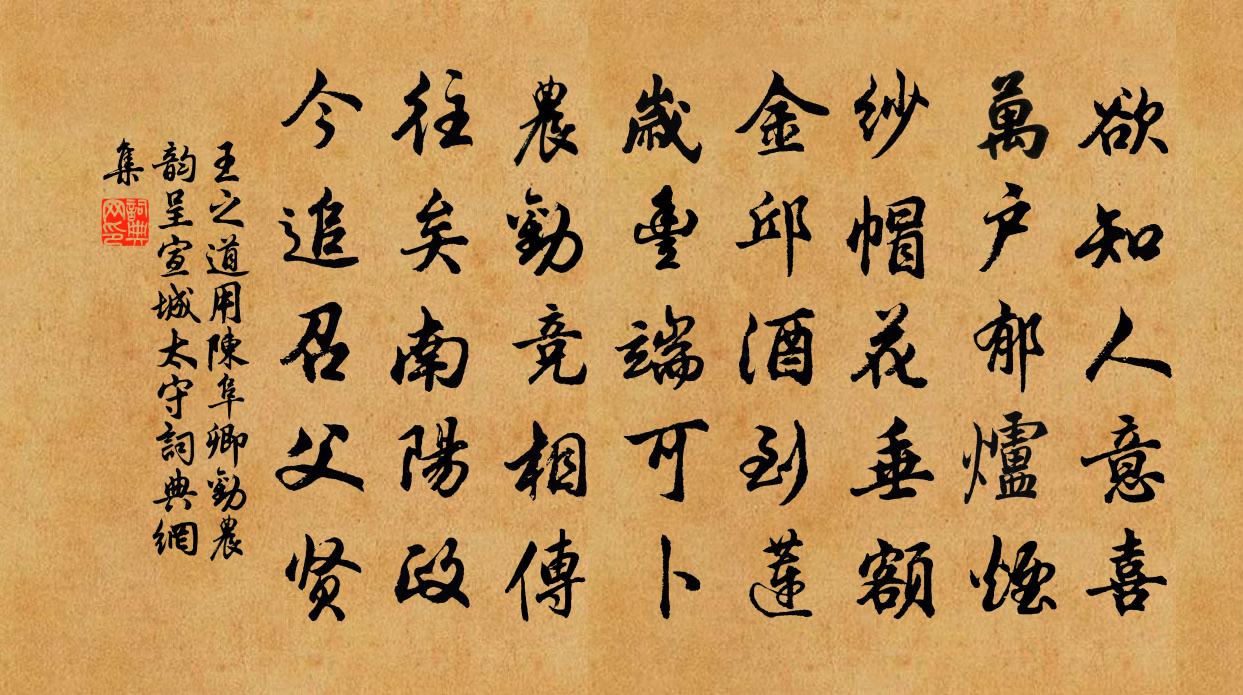 欲知人意喜
萬户郁爐煙
紗帽花垂額
金邱酒到蓮
歲豊端可卜
農勸竞相傳
往矣南陽政
今追召父贤
王之道用陳阜卿勸農
韵呈宣城太守詞典網
集
詞典
网印